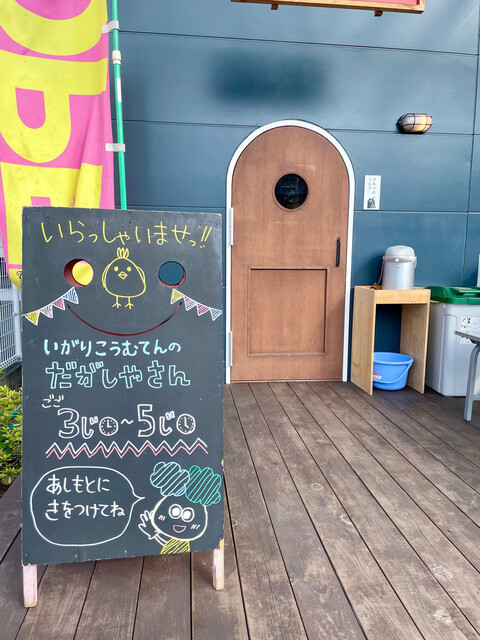 OPE
いらっしゃいませっ!!
いがりこうむてんの
だがしやさん
ごご
3じ〜5じ
あしもとに
きをつけてね